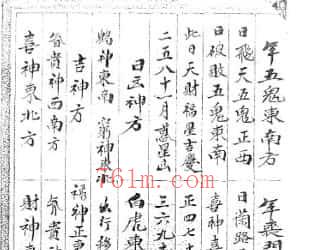 年五鬼東南方
日飛天五鬼正西
日破敗五鬼東南
此日天財福星吉慶
二五八十一月惑星山
日凶神方
神東南 窮神東
吉神方
貴神西南方
喜神東北方
年
日
喜神
正四七
三六九
白虎東
出行移
祿神正東
貴神
財神
761m.com